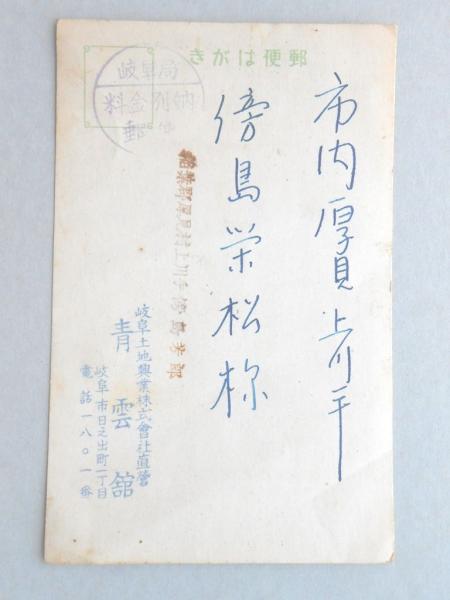 郵便はがき
岐阜局
料金別納
郵便
市内厚見上川手
傍島栄松様
稲葉郡厚見村上川手傍島
岐阜土地興業株式會社直營
青雲舘
岐阜市日之出町一丁目
電話一八〇一番